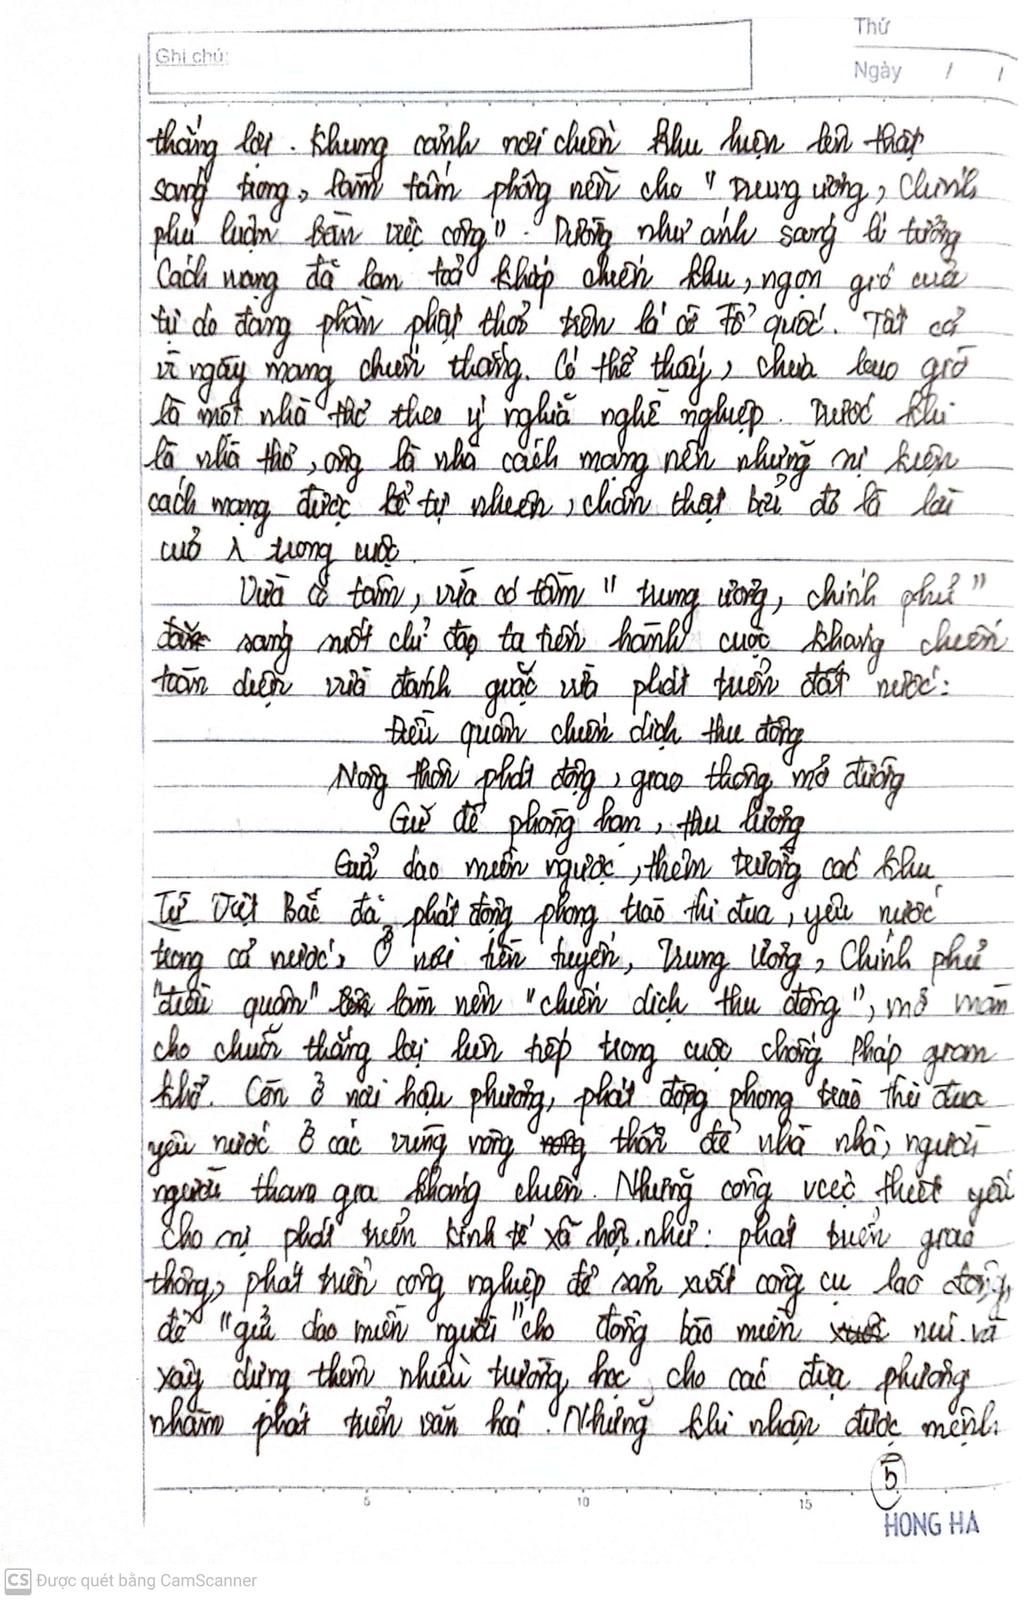 Ghi chú:
Thứ
Ngày / /
thắng lợi. Khung cảnh nơi chiến khu hiện lên thật
sang trọng, làm tấm phông nền cho "Trung ương, Chính
phủ luận bàn việc công". Dường như ánh sáng lí tưởng
Cách mạng đã lan toả khắp chiến khu, ngọn gió của
tự do đang phần phật thổi trên lá cờ Tổ quốc. Tất cả
vì ngày mang chiến thắng. Có thể thấy, chưa bao giờ
là một nhà thơ theo ý nghĩa nghề nghiệp. Trước khi
là nhà thơ, ông là nhà cách mạng nên những sự kiện
cách mạng được kể tự nhiên, chân thật bởi đó là lời
của λ trong cuộc.
Vừa có tâm, vừa có tầm "trung ương, chính phủ"
sáng suốt chỉ đạo ta tiến hành cuộc kháng chiến
toàn diện vừa đánh giặc vừa phát triển đất nước:
Điều quân chiến dịch thu đông
Nông thôn phát động, giao thông mở đường
Giữ đê phòng hạn, thu lương
Gửi dao miền ngược, thêm trường các khu
Từ Việt Bắc đã phát động phong trào thi đua, yêu nước
trong cả nước, Ở nơi tiền tuyến, Trung Ương, Chính phủ
"điều quân" làm nên "chiến dịch thu đông", mở màn
cho chuỗi thắng lợi liên tiếp trong cuộc chống Pháp gian
khổ. Còn ở nơi hậu phương, phát động phong trào thi đua
yêu nước ở các vùng nông thôn để nhà nhà, người
người tham gia kháng chiến. Những công việc thiết yếu
cho sự phát triển kinh tế xã hội như: phát triển giao
thông, phát triển công nghiệp để sản xuất công cụ lao động,
để "gửi dao miền người" cho đồng bào miền núi và
xây dựng thêm nhiều trường học cho các địa phương
nhằm phát triển văn hoá. Nhưng khi nhận được mệnh
5
5 10 15
HONG HA
CS Được quét bằng CamScanner